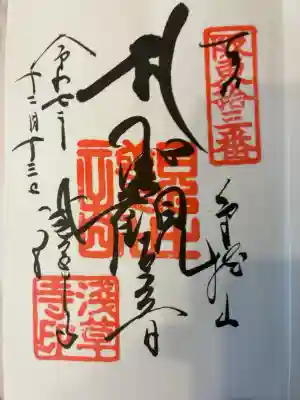 坂東拾三番
奉拝
金龍山
聖観世音
浅草寺
淺草寺印
令和七年
十二月十三日